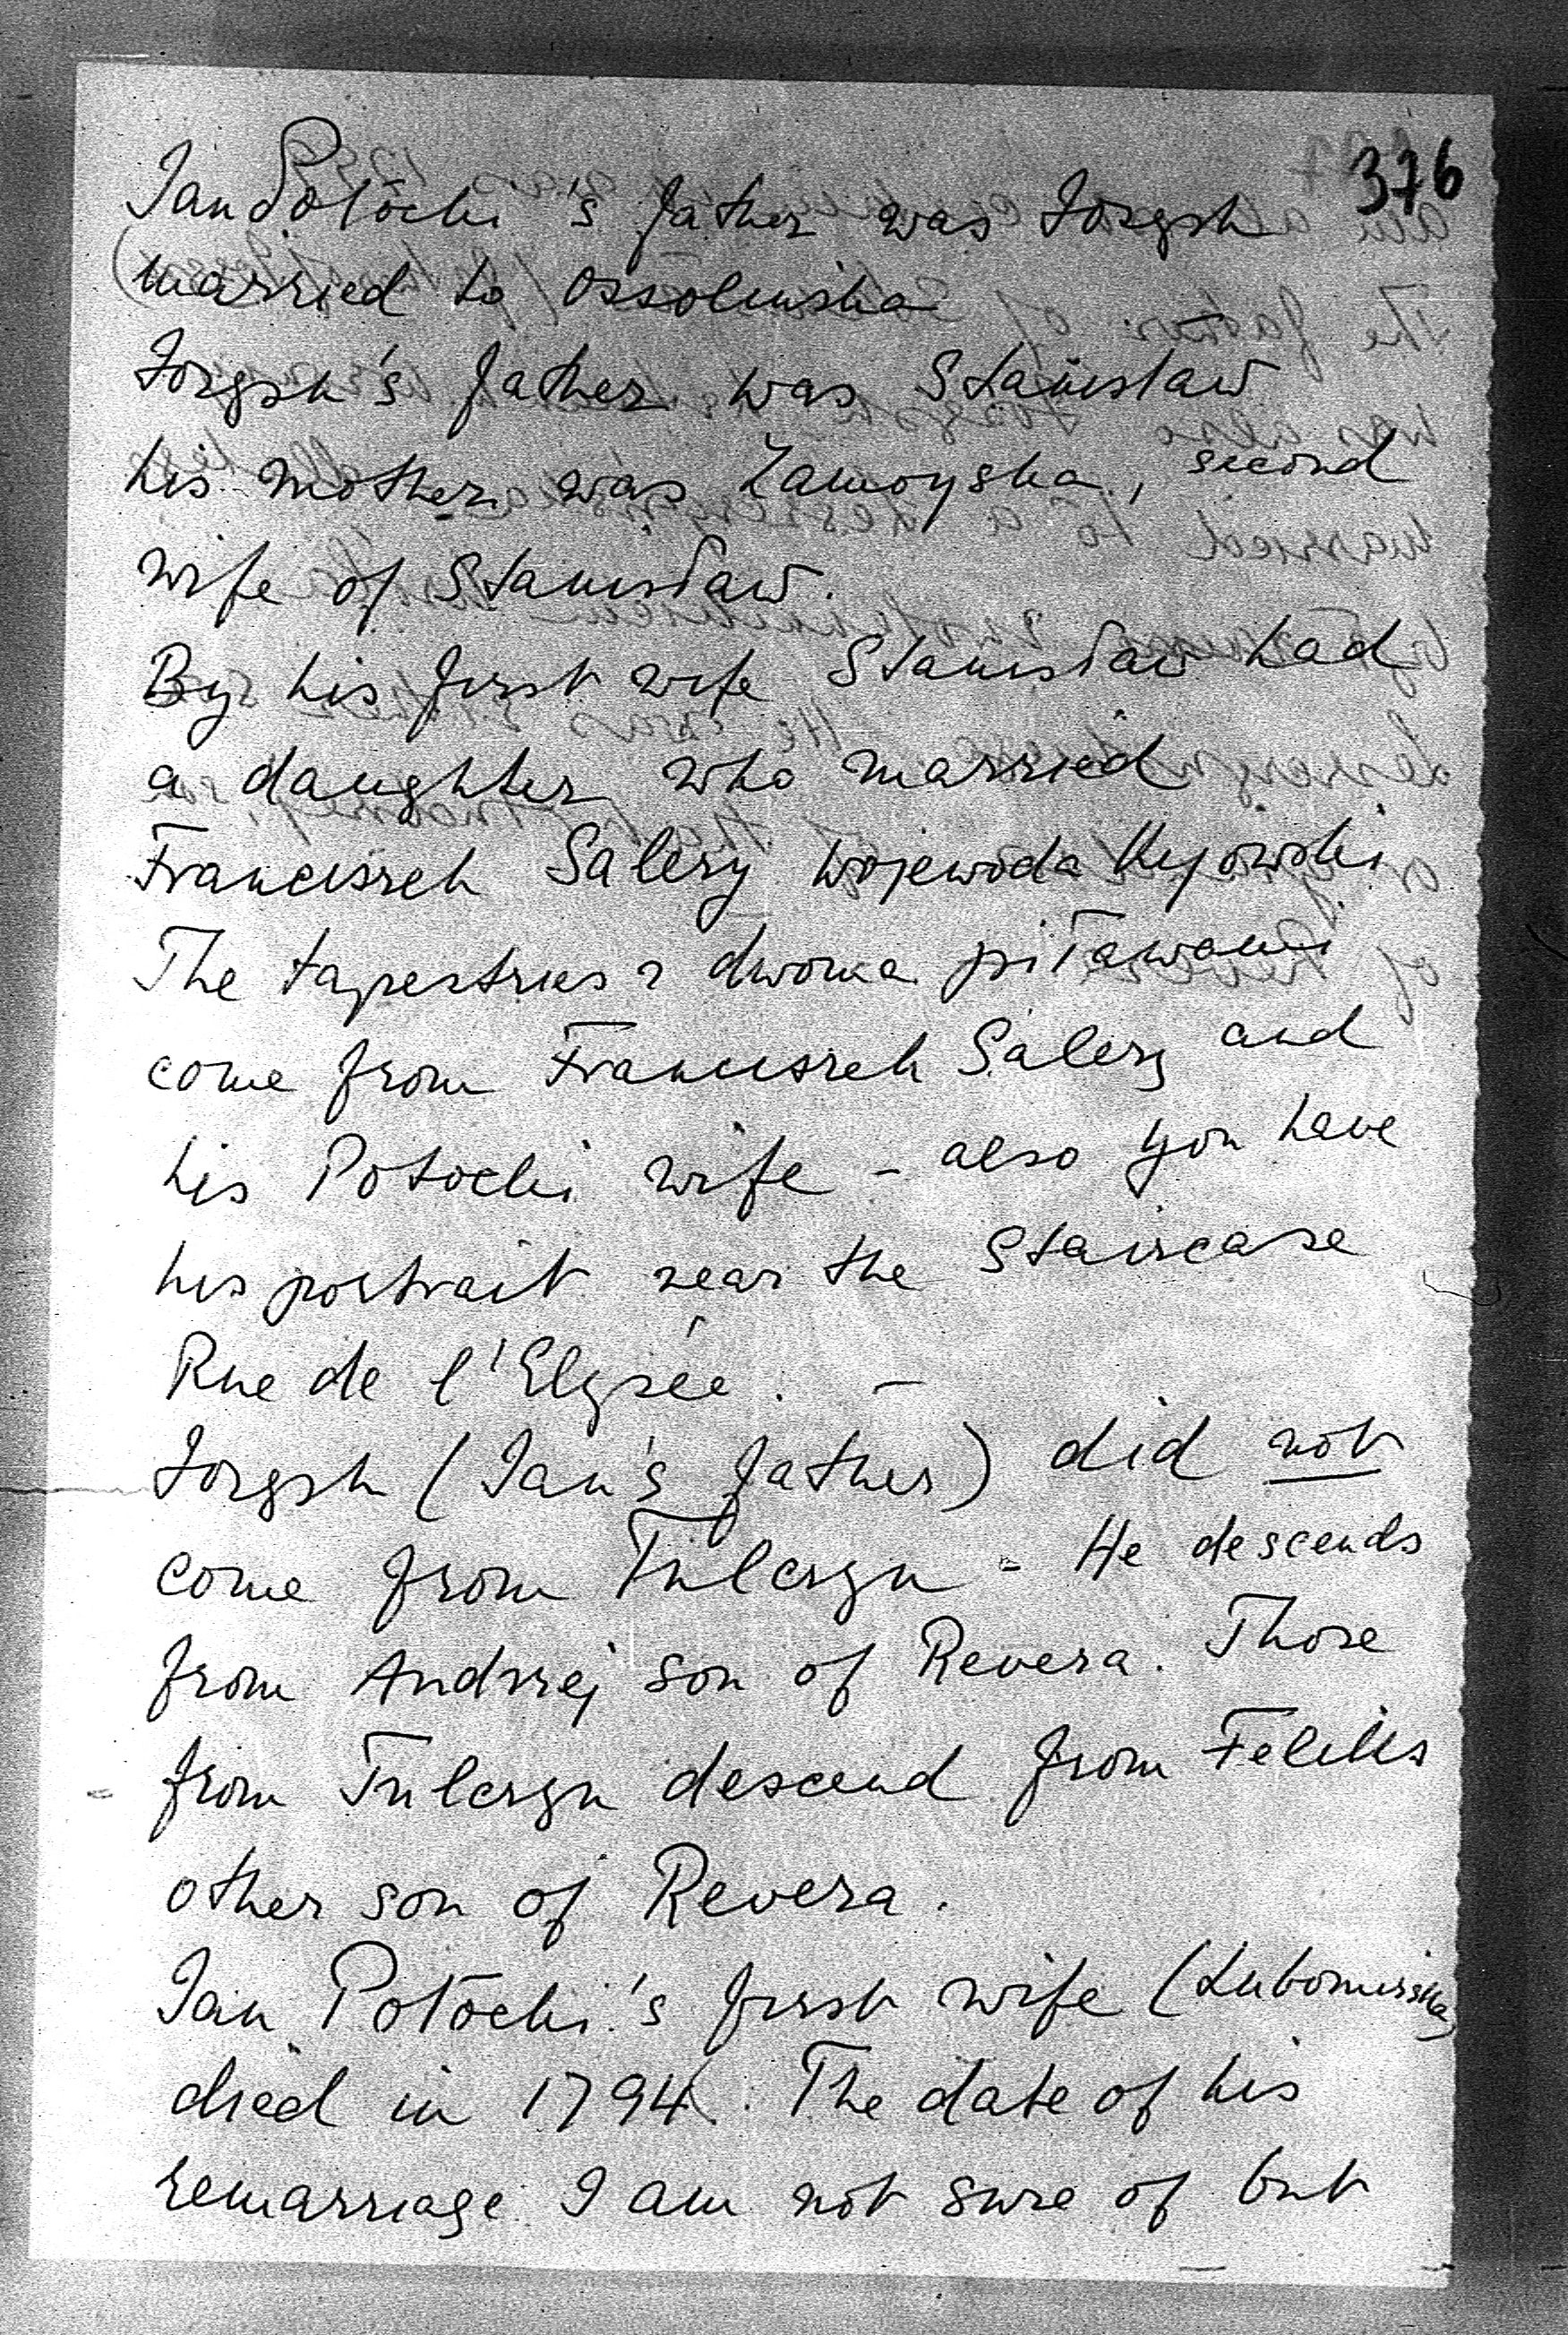 376
Jan Potocki's father was Józef
married to Ossolinska
Józef's father was Stanisław
his mother was Zamoyska, second
wife of Stanisław.
By his first wife Stanisław had
a daughter who married
Franciszek Salezy Wojewoda Kyowski
The tapestries z dwoma piławami
come from Franciszek Salezy and
his Potocki wife - also you have
his portrait near the staircase
Rue de l'Elysée. -
Józef (Jan's father) did not
come from Tulczyn - He descends
from Andrzej son of Revera. Those
from Tulczyn descend from Feliks
other son of Revera.
Jan Potocki's first wife (Lubomirska)
died in 1794. The date of his
remarriage I am not sure of but